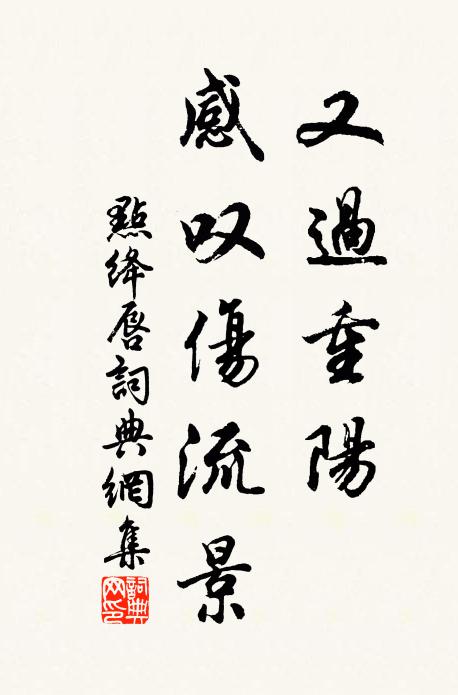 又過重陽
感叹傷流景
點绛唇詞典網集
詞典网印